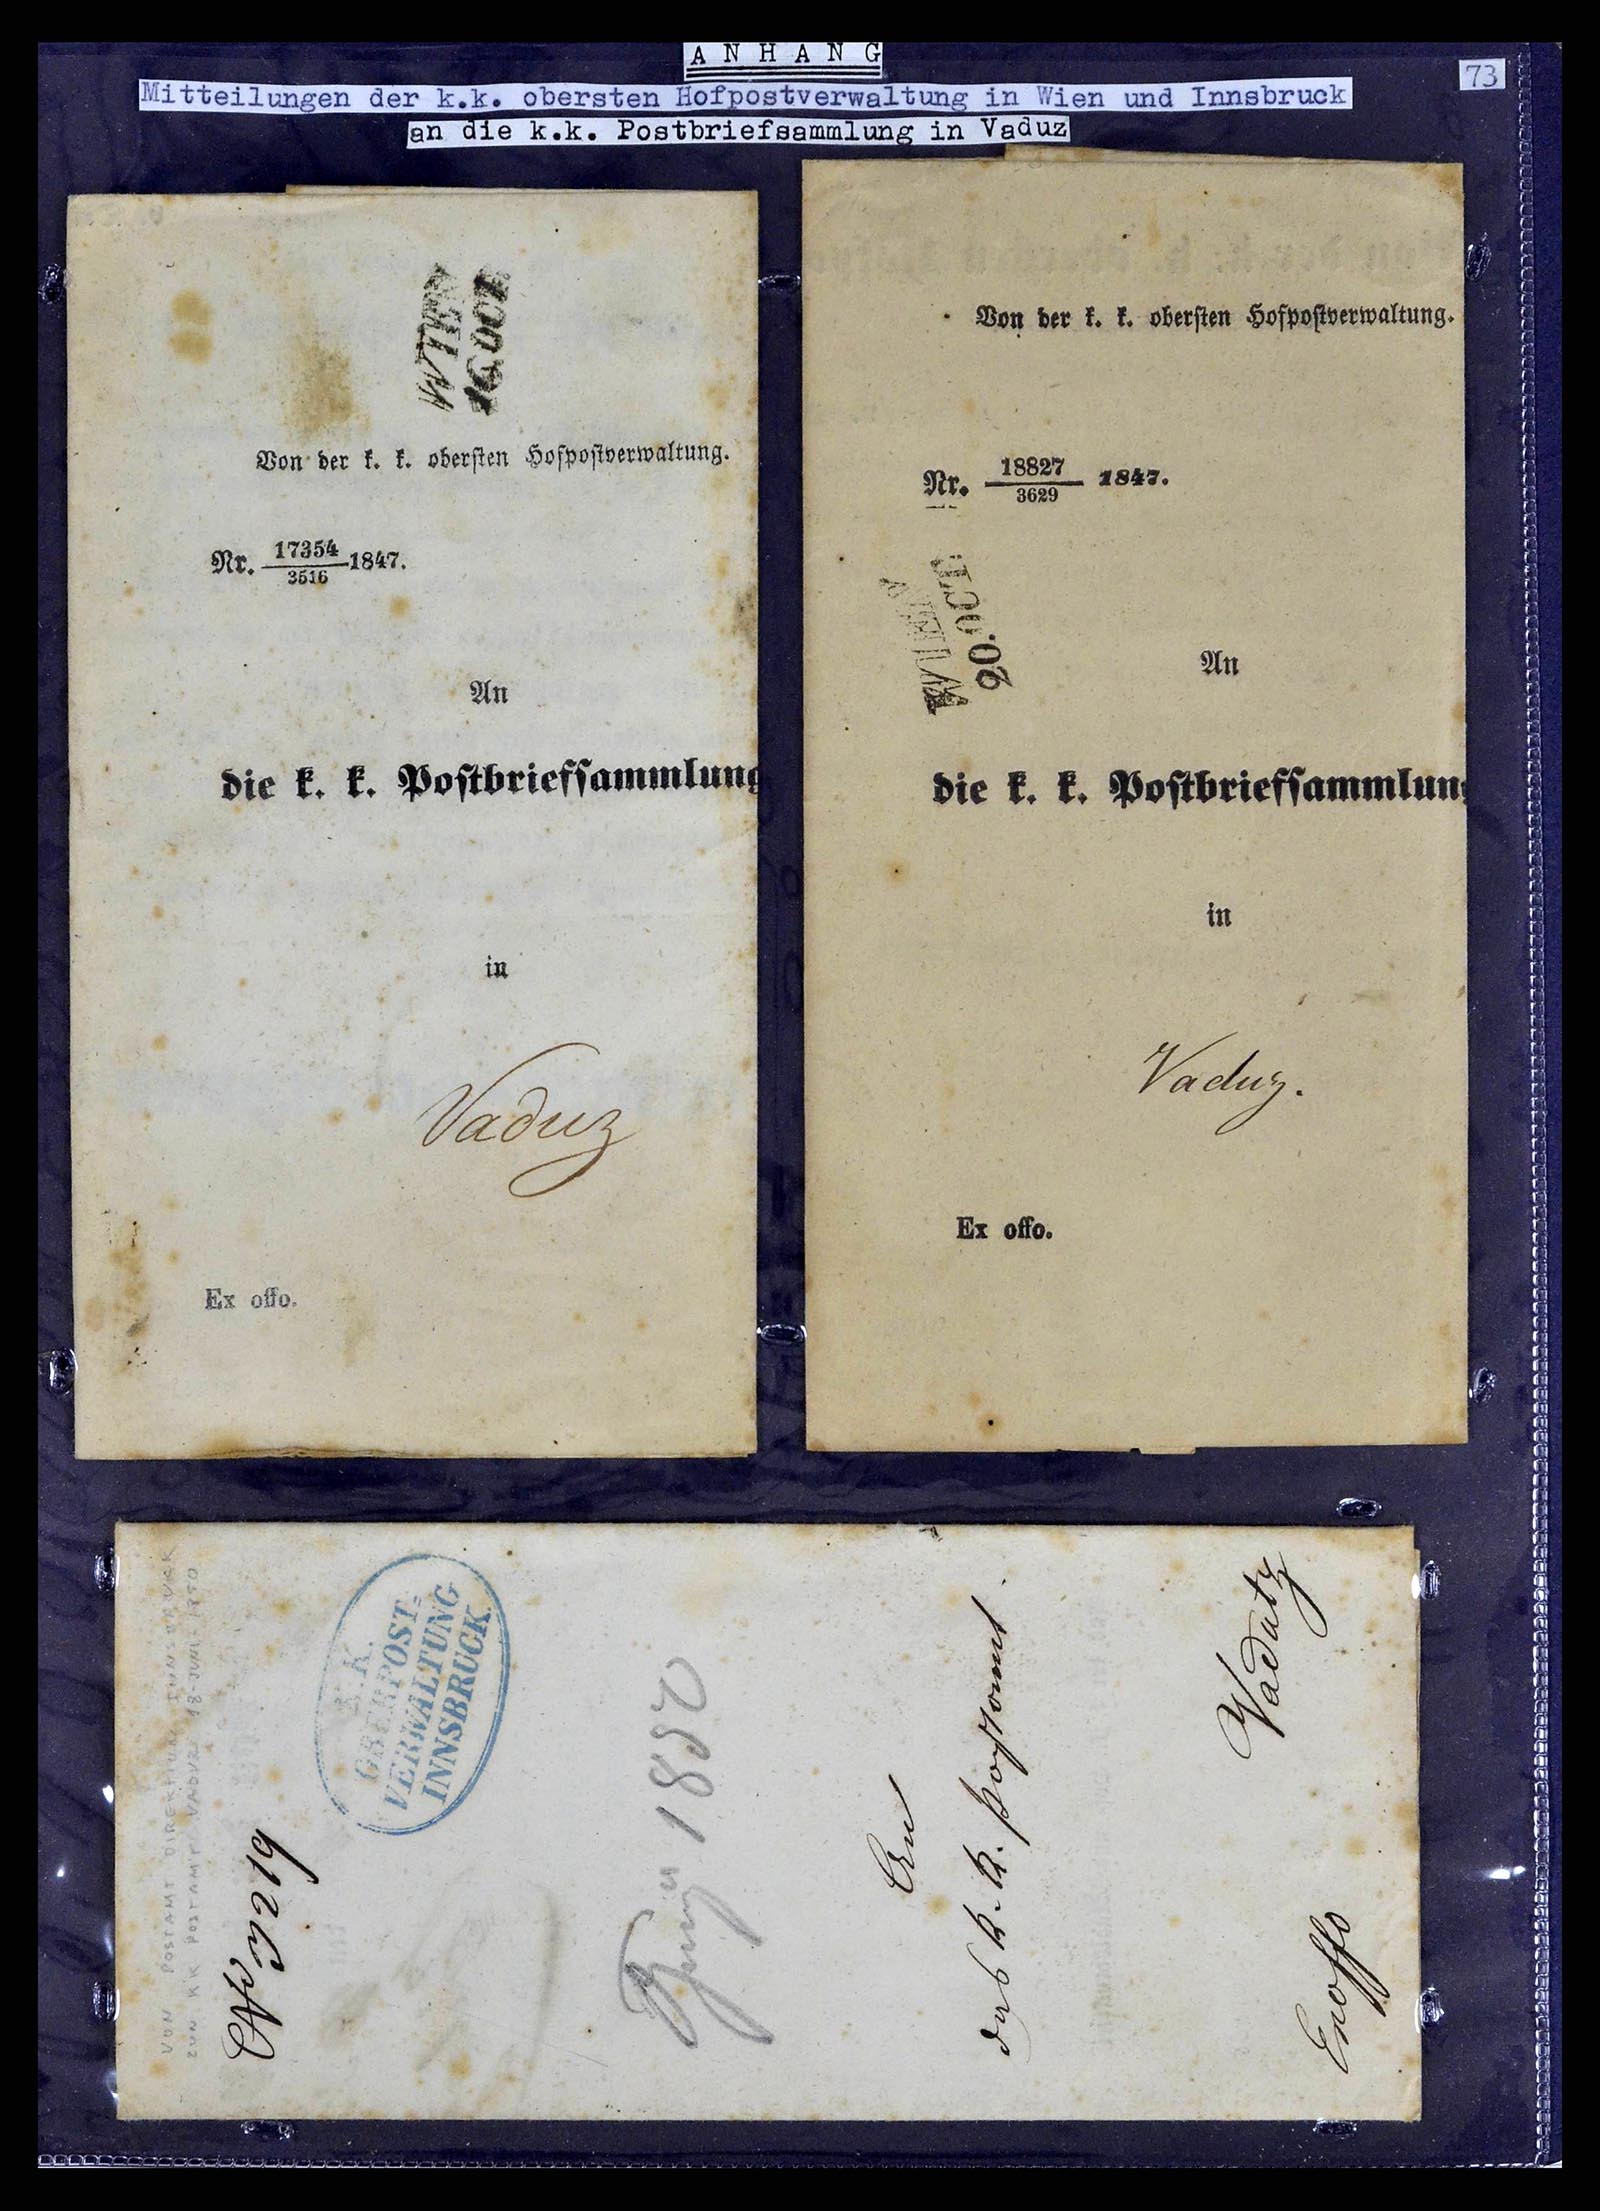 ANHANG
73
Mitteilungen der k.k. obersten Hofpostverwaltung in Wien und Innsbruck
an die k.k. Postbriefsammlung in Vaduz
WIEN
16.OCT.
Von der k. k. obersten Hofpostverwaltung.
Nr. 17354/3516 1847.
An
die k. k. Postbriefsammlung
in
Vaduz
Ex offo.
Von der k. k. obersten Hofpostverwaltung.
Nr. 18827/3629 1847.
WIEN
20.OCT.
An
die k. k. Postbriefsammlung
in
Vaduz.
Ex offo.
VON POSTAMT DIREKTION INNSBRUCK
ZUM KK POSTAMT VADUZ 18-JUNI-1850
3219
K.K.
OBERPOST=
VERWALTUNG
INNSBRUCK.
1850
An
das k. k. Postamt
Vadutz
Exoffo